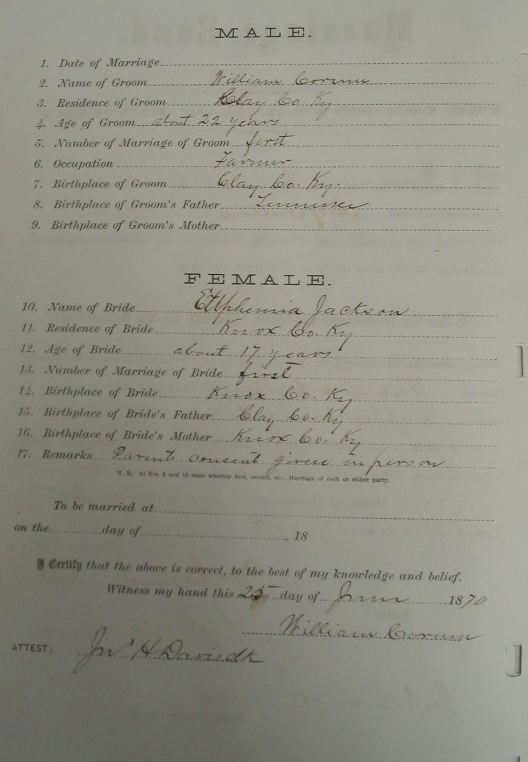 MALE.
1. Date of Marriage
2. Name of Groom William Corum
3. Residence of Groom Clay Co. Ky
4. Age of Groom about 22 years
5. Number of Marriage of Groom first
6. Occupation Farmer
7. Birthplace of Groom Clay Co. Ky.
8. Birthplace of Groom's Father Tennessee
9. Birthplace of Groom's Mother
FEMALE.
10. Name of Bride Jackson
11. Residence of Bride Knox Co. Ky
12. Age of Bride about 17 years
13. Number of Marriage of Bride first
14. Birthplace of Bride Knox Co. Ky
15. Birthplace of Bride's Father Clay Co. Ky
16. Birthplace of Bride's Mother Knox Co. Ky
17. Remarks Parents consent given in person
N. B. At Nos. 5 and 13 state whether first, second, etc., Marriage of each or either party.
To be married at
on the day of , 18
I Certify that the above is correct, to the best of my knowledge and belief.
Witness my hand this 25 day of June 1870
William Corum
ATTEST: Jno H Davis